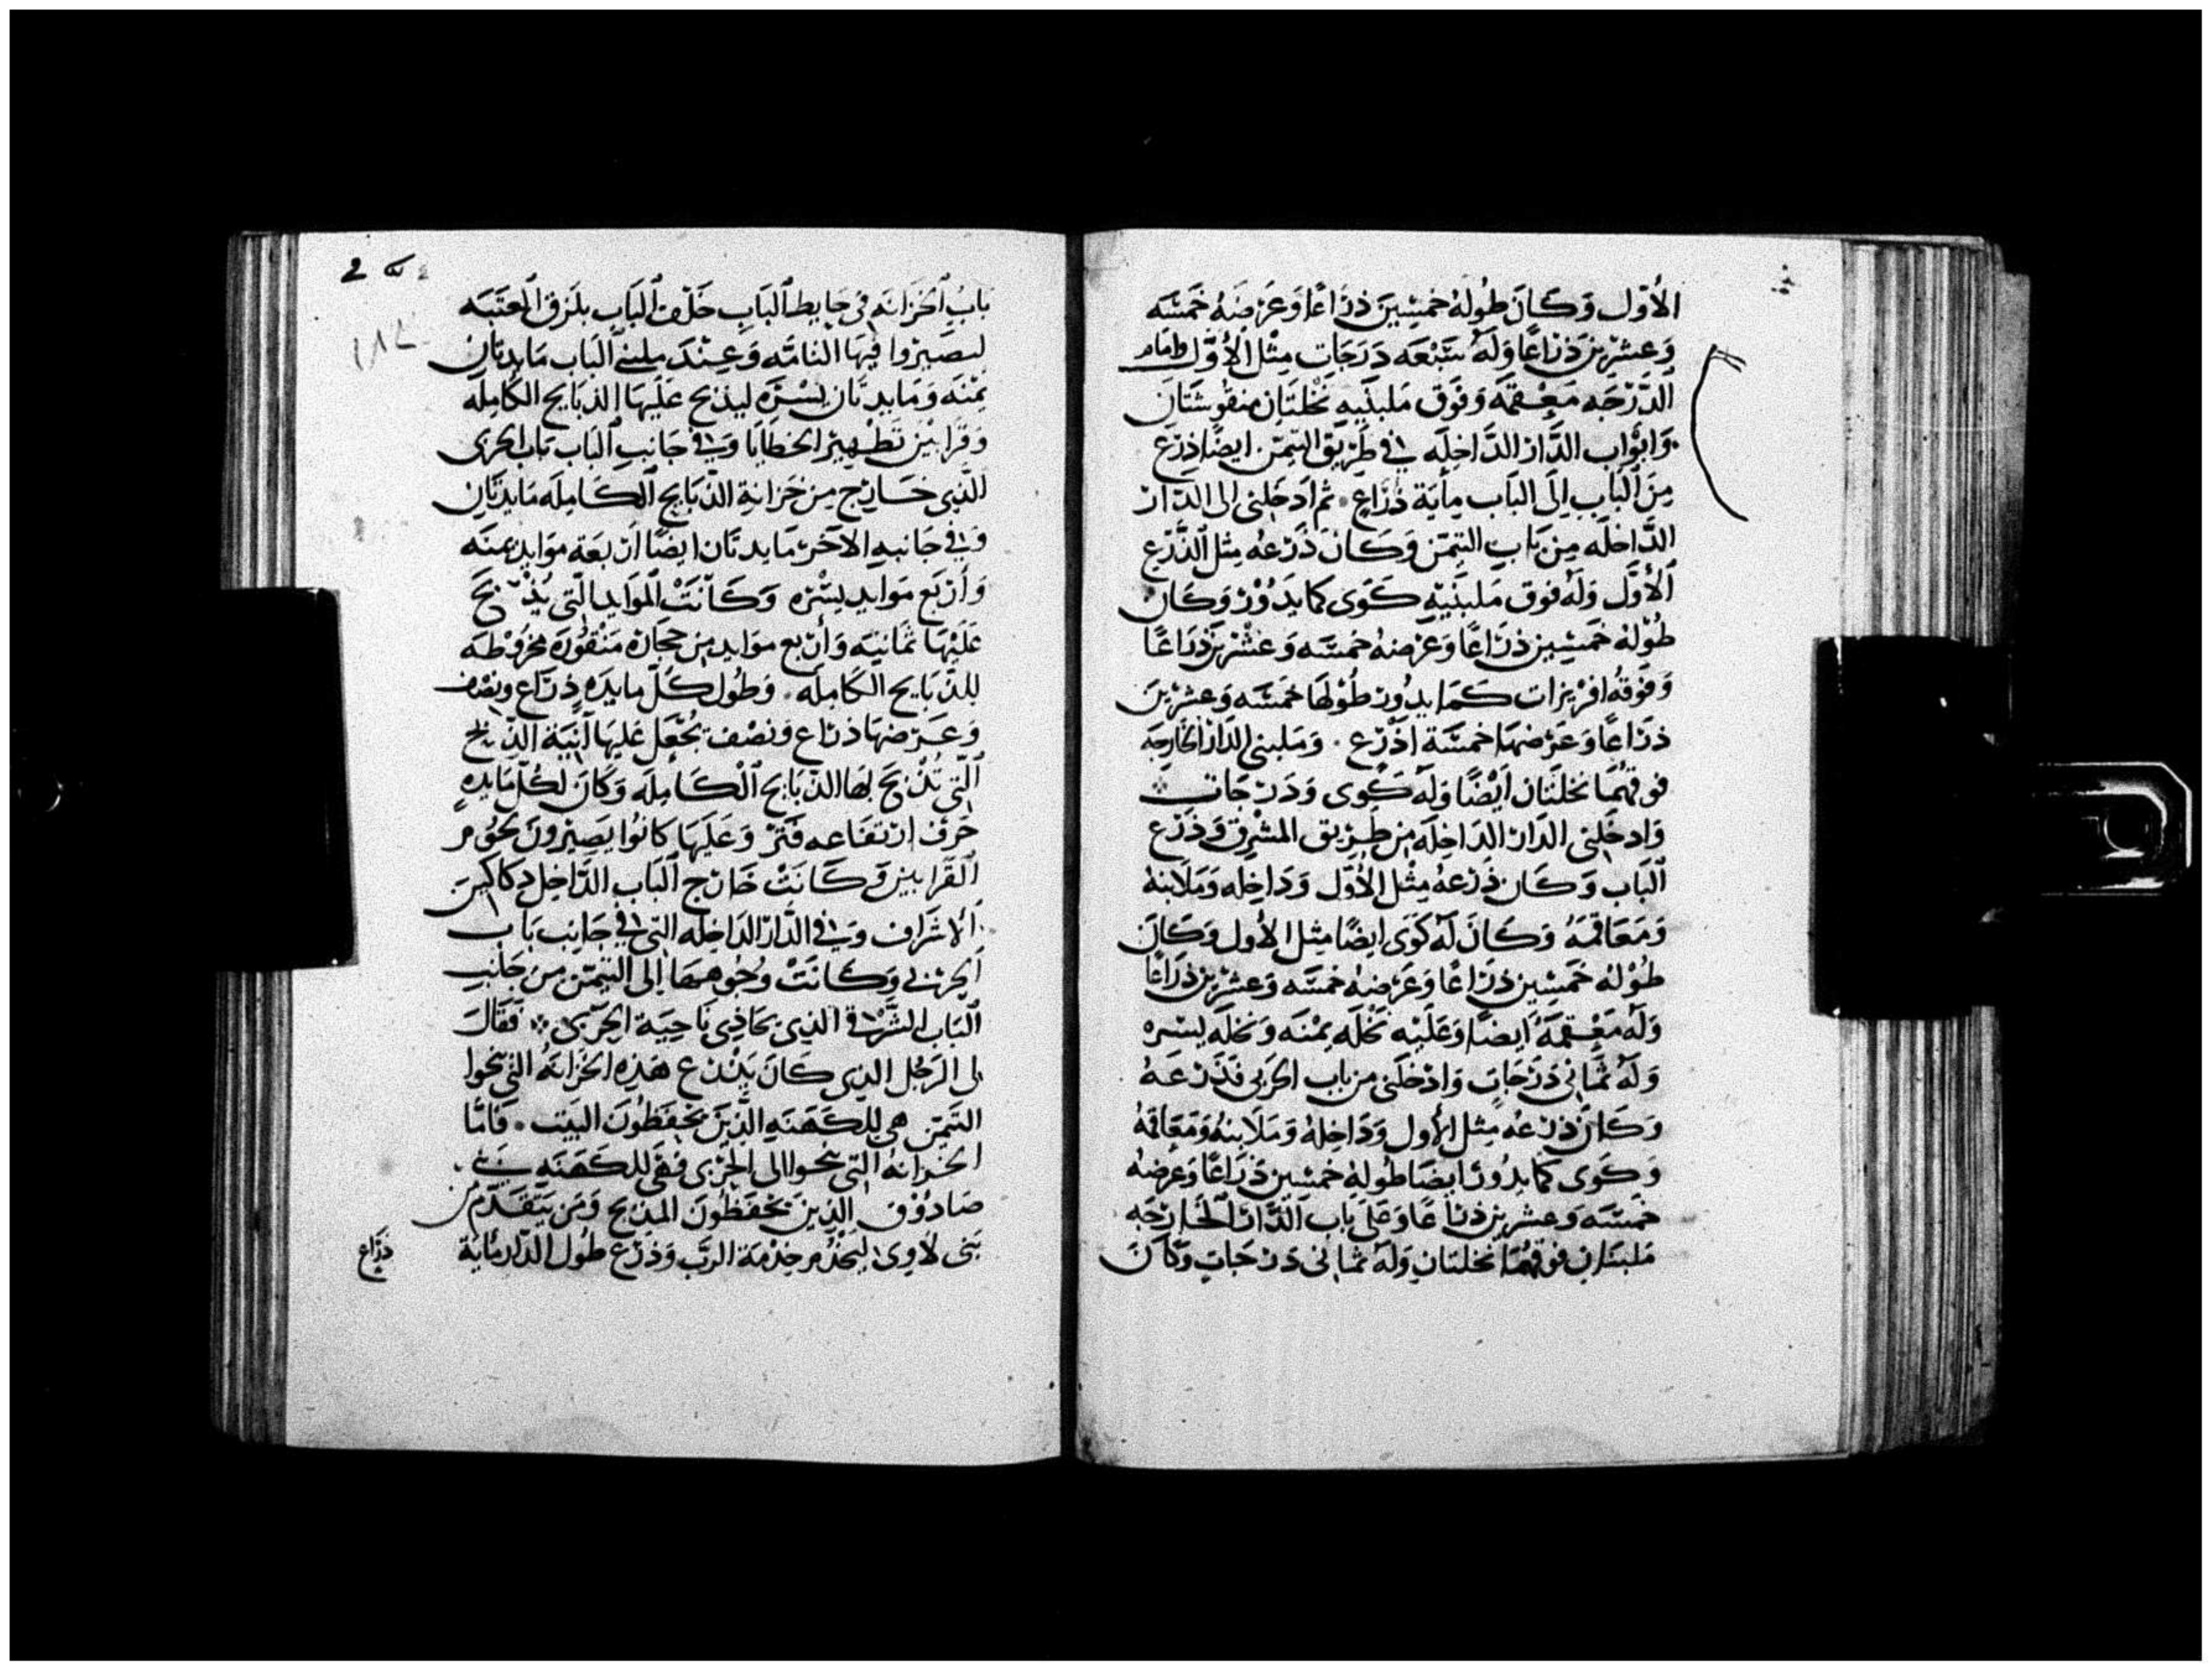 الأوّل وَكَانَ طُولهُ خمسِينَ ذرَاعًا وَعَرْضهُ خَمسَه
وَعشرِين ذرَاعًا وَلَهُ سَبْعَه دَرَجَات مِثْل الأوَّل وامام
الدَّرْجَه مَعِقمَهَ وَفَوق مَلبنَيه نَخْلتَان منقُوشتَان
وَابْوَاب الدَّار الدَّاخِلَه في طَرِيق التيمَن ايضًا ذرع
مِنَ البَابِ اِلَى البَاب مِايَة ذرَاع. ثم اَدخَلنى الى الدَار
الدَّاخلَه مِن بَاب التيمَن وَكَانَ ذَرْعهُ مِثل الذَّرْع
الأوَّل وَلَه فوق مَلبَنَيْه كَوَى كما يَدُوْر وَكَان
طُوْلهُ خَمسِين ذرَاعًا وَعَرْضهُ خمسَه وَعشْرين ذرَاعًا
وَفوقهُ افرِيزَات كَمَا يدُور طُوْلهَا خمسَه وَعشرينَ
ذرَاعًا وَعَرْضهَا خمسَة اَذْرُع. وَمَلبنى الدَار الخارِجَه
فوقهُمَا نخلتَان اَيْضًا وَلَه كَوَى وَدَرَجَات
وَادخَلنِى الدَار الدَاخِلَه مِن طَرِيق المشْرِق وَذرَع
البَاب وَكَان ذَرْعهُ مِثْل الأوَّل وَدَاخِله وَمَلَابنهُ
وَمَعَاقمَهُ وَكَانَ لَه كَوَى ايضًا مِثل الأول وَكَانَ
طُوْلهُ خَمسِين ذرَاعًا وَعَرْضهُ خمسَه وَعشرِين ذرَاعًا
وَلَه مَعْقمَهُ ايضًا وَعَلَيْه نَخْلَه يمْنَه وَنخلَه يسْره
وَلَهُ ثمَانى دَرَجَات وَادْخلَنى مِن باب الجَربى فذَرَعَهُ
وَكَانَ ذَرْعهُ مِثل الأول وَدَاخِلهُ وَمَلَابنهُ وَمَعَاقمهُ
وَكَوى كما يدُور ايضَا طُولهُ خمسِين ذرَاعًا وَعَرْضهُ
خَمسَه وَعشرِين ذرَاعًا وَعَلى بَاب الدَّار الخَارجَه
مَلبنَان فوقهُمَا نخلتَان وَلَه ثمَانى دَرَجَات وَكَانَ
بَابُ الخَزَانَه في حَايط البَاب خَلف البَاب بلزق العتَبَه
ليصَيرُوا فيهَا التامَّه وَعِنْدَ ملبنى البَاب مَايدتَان
يمْنَه وَمَايدتَان يسْرَه ليذبح عَليهَا الذبَايح الكَامِلَه
وَقرَابِين تَطْهِير الخَطَايَا وَفي جَانِب البَاب بَاب الجربى
الَّذِي خَارِج مِن خزَانةِ الذبَايح الكَامِلَه مَايدتَان
وَفي جَانبهِ الآخر مَايدتَان ايضًا اَربَعَة موَايد يمنَه
وَاَربَع مَوايد يسْره وَكَانَتْ المَوَايد التِى يُذبَحَ
عَلَيْهَا ثمَانيَه وَأربع موَايد مِن حجَارَه مَنْقُوْرَه مخرُوطَه
لِلذبَايح الكَامِلَه. وَطُول كُلّ مايدَه ذرَاع ونصْف
وَعَرْضهَا ذرَاع وَنصْف يُجْعَل عَليهَا اَنِيَة الذبَايح
الَّتِى تُذبَح بهَا الذبَايح الكَامِلَه وَكَانَ لكُلّ مَايدهٍ
حَرْف ارتفَاعه فتر وَعَلَيهَا كانُوا يَصِيرُونَ لحُوم
القرَابِين وَكَانَتْ خَارِج البَاب الدَّاخِل دكاكين
الاشْرَاف وَفي الدَّار الدَاخِله التِى في جَانِب بَاب
الجربي وَكَانَتْ وُجُوههَا إلى التيمَن مِن جَانِبِ
البَاب الشَرْقي الذِي يحَاذِي نَاحِيَة الجربى. فقَالَ
لى الرَجُل الذِي كَانَ يَذرَع هَذِه الخزَانهُ التى نحوا
التيمَن هى للكَهَنَه الَّذِينَ يحْفَظُونَ البَيت. فَامَّا
الخزانَهُ التى نحوا الى الجربى فهَى للكَهَنَه بَني
صَادُوْق الذِينَ يحْفَظُونَ المذبح وَمَن يَتقَدَّم مِن
بَنى لاوِى ليَخْدُم خِدْمَة الرَبّ وَذرَع طُول الدَار مَايَة
ذرَاع